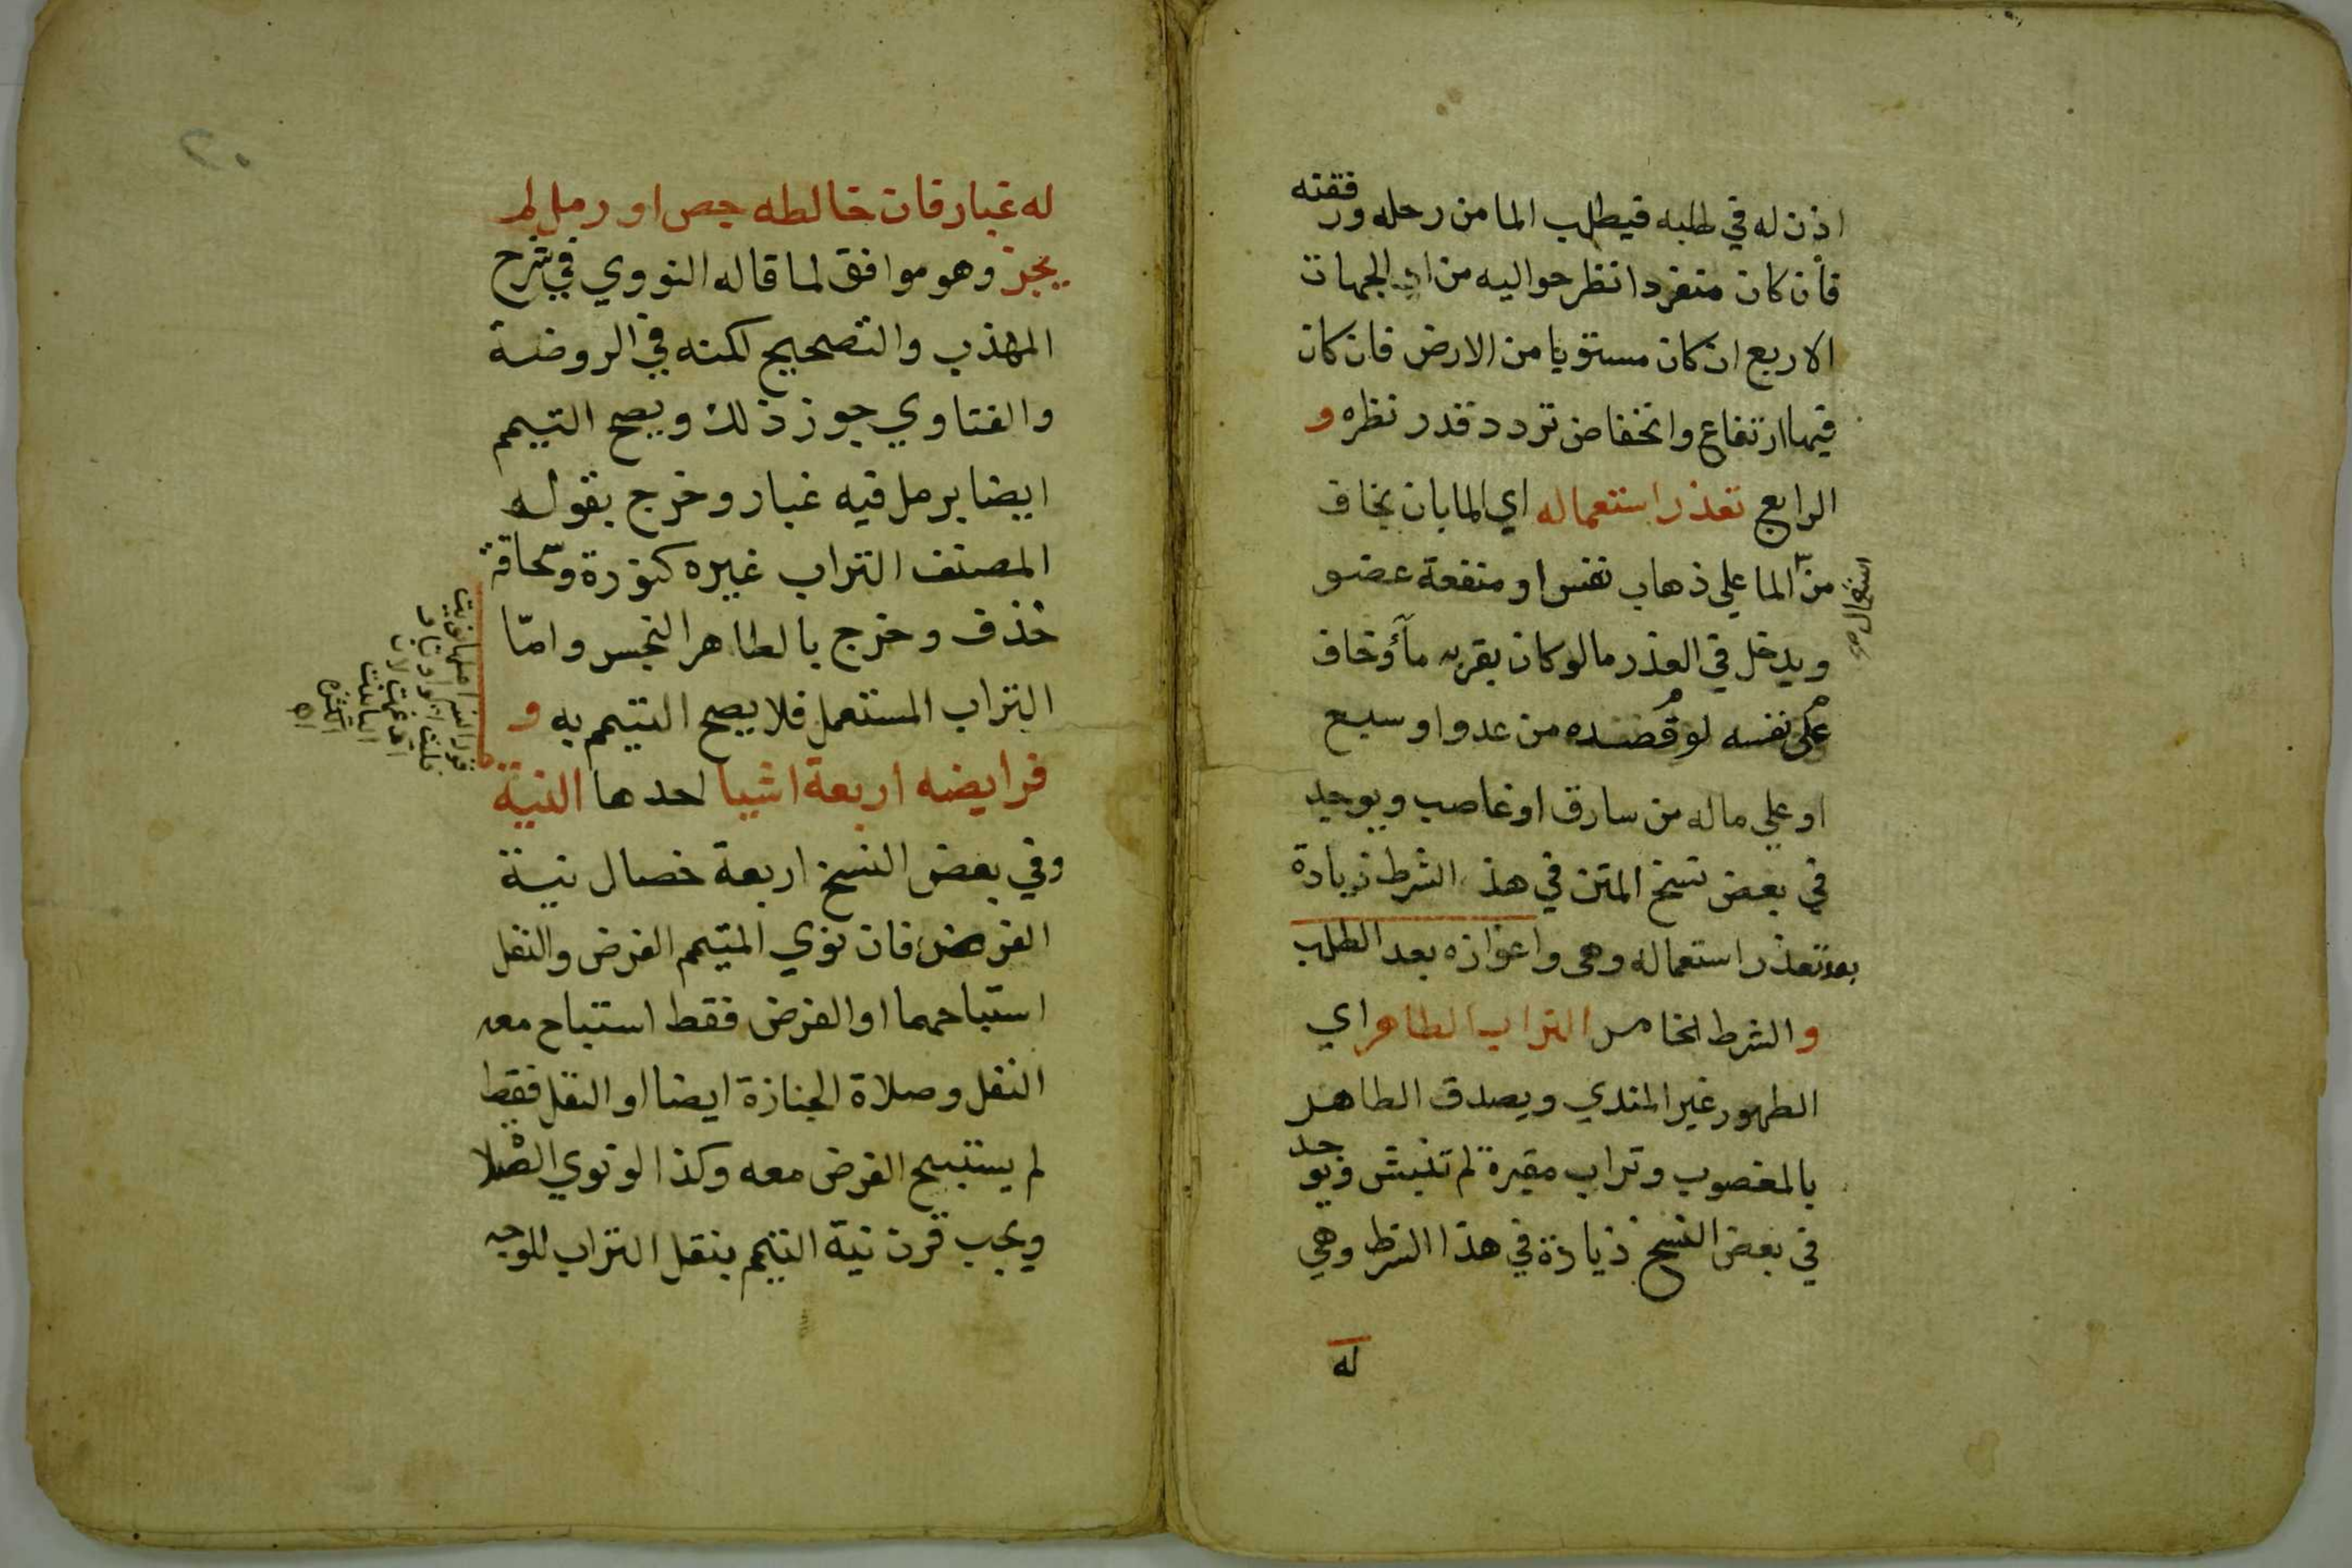 اذن له في طلبه فيطلب الما من رحله ورفقته
فان كان منفردا نظر حواليه من الجهات
الاربع ان كان مستويا من الارض فان كان
فيها ارتفاع وانخفاض تردد قدر نظره و
الرابع تعذر استعماله اي الما بان يخاف
من الما على ذهاب نفس او منفعة عضو
استعمال صح
ويدخل في العذر ما لو كان بقربه ماؤ وخاف
على نفسه لو قصده من عدو او سبع
او علي ماله من سارق او غاصب ويوجد
في بعض نسخ المتن في هذ الشرط زيادة
بعد تعذر استعماله وهي واعوازه بعد الطلب
والشرط الخامس التراب الطاهر اي
الطهور غير المندي ويصدق الطاهر
بالمغصوب وتراب مقبرة لم تنبش ويوجد
في بعض النسخ زيادة في هذا الشرط وهي
له
٢٠
له غبار فان خالطه جص او رمل لم
يجز وهو موافق لما قاله النووي في شرح
المهذب والتصحيح لكنه في الروضة
والفتاوي جوز ذلك ويصح التيمم
ايضا برمل فيه غبار وخرج بقول
المصنف التراب غيره كنورة وسحاقة
خذف وخرج بالطاهر النجس وامّا
التراب المستعمل فلا يصح التيمم به و
فرايضه اربعة اشيا احدها النية
وفي بعض النسخ اربعة خصال نية
الفرض فان نوي المتيمم الفرض والنفل
استباحهما او الفرض فقط استباح معه
النفل وصلاة الجنازة ايضا او النفل فقط
لم يستبح الفرض معه وكذا لو نوي الصلا
ويجب قرن نية التيمم بنقل التراب للوجه